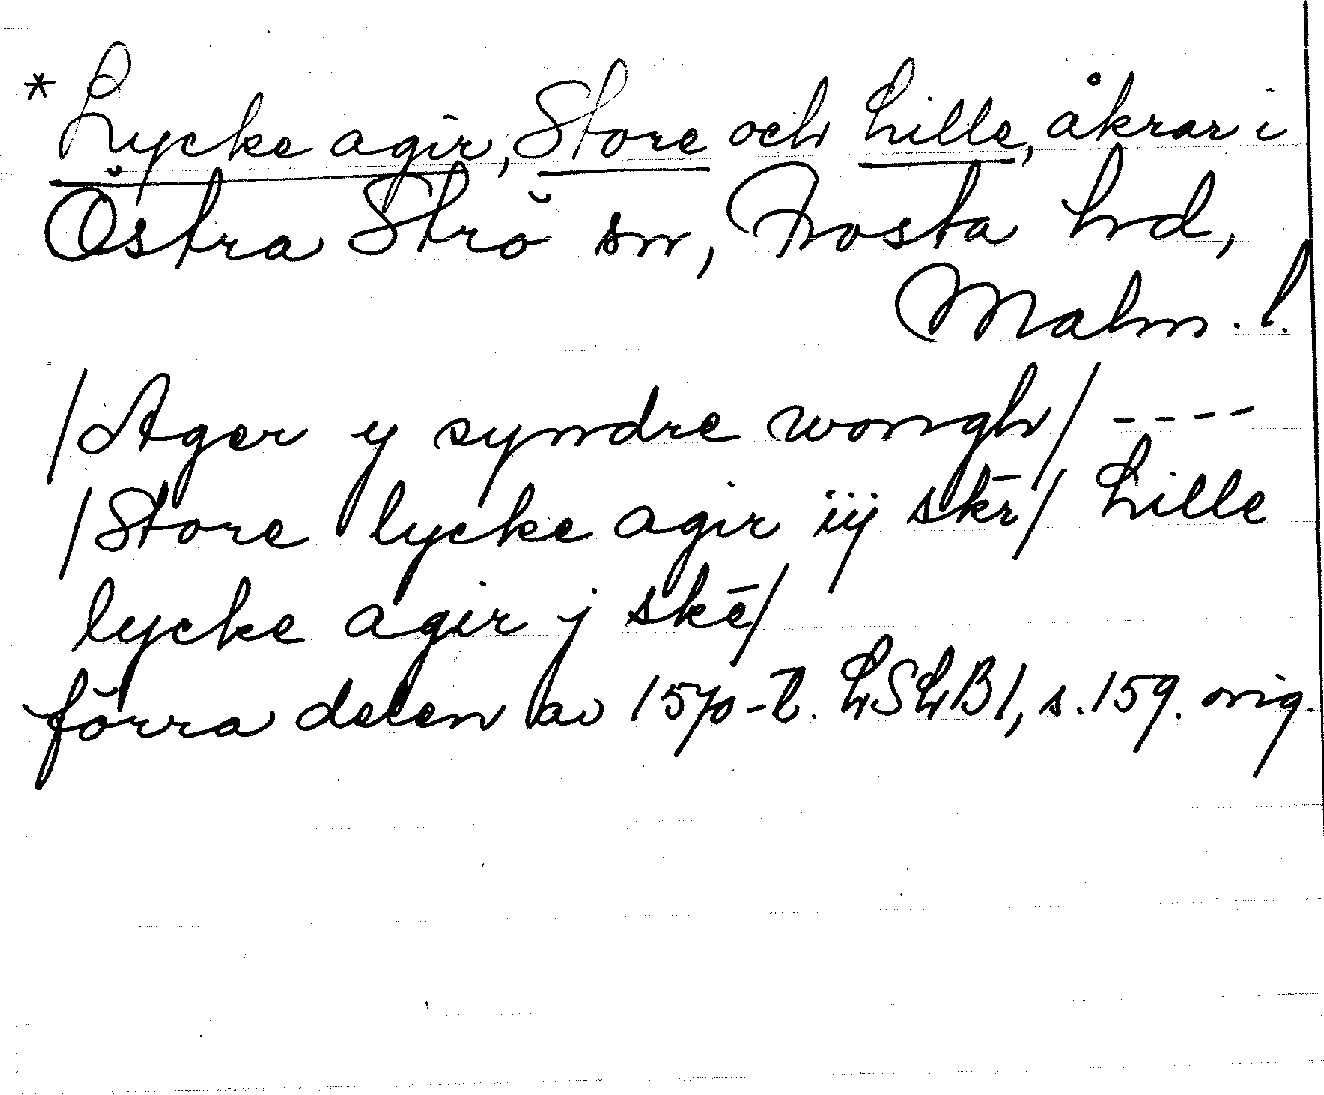 * Lycke agir, Store och Lille, åkrar i
Östra Strö sn, Frosta hd,
Malm. l.
/Ager y syndre wongh/ ----
/Store lycke agir iij skē/ Lille
lycke agir j skē/
förra delen av 1570-t. LSLB1, s.159. orig.